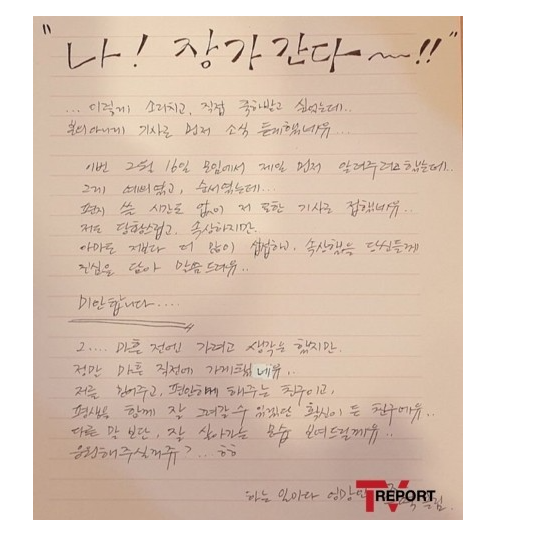 "나! 장가 간다~!!"
... 이렇게 소리치고, 직접 축하받고 싶었는데..
본의아니게 기사로 먼저 소식 듣게했네유...
이번 2월 16일 모임에서 제일 먼저 알려주려고 했는데..
그게 예의였고, 순서였는데...
편지 쓸 시간도 없이 저 또한 기사로 접했네유..
저도 당황스럽고, 속상하지만.
아마도 저보다 더 많이 섭섭하고, 속상했을 당신들께
진심을 담아 말씀드려유..
미안합니다....
그.... 마흔 전엔 가려고 생각은 했지만.
정말 마흔 직전에 가게 됐네유..
저를 믿어주고, 편안하게 해주는 친구이고,
평생을 함께 잘 그려갈 수 있겠단 확신이 든 친구에유..
다른 말 보단, 잘 살아가는 모습 보여드릴께유..
응원해주실꺼쥬?...ㅎㅎ
하는 일마다 엉망인 드림.
TV REPORT